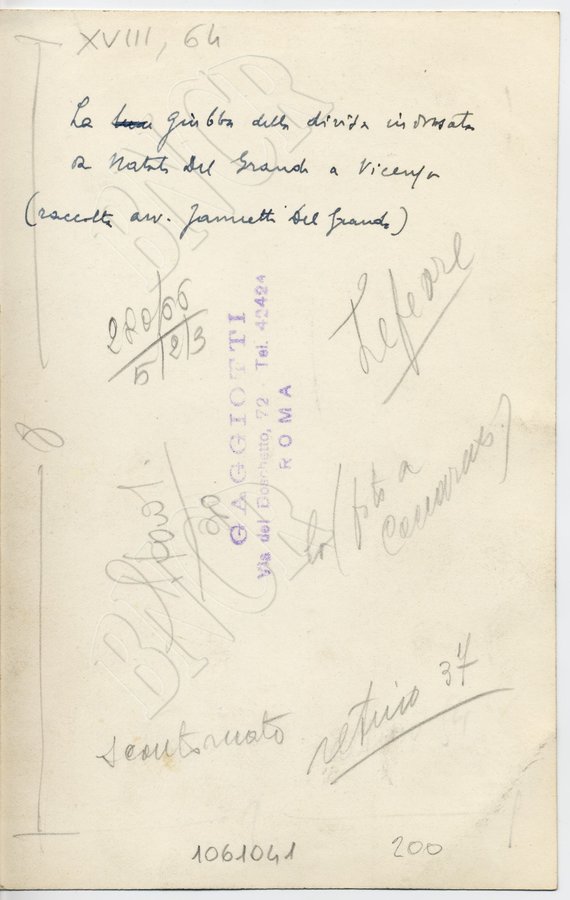 XVIII, 64
La giubba della divisa indossata
da Natale Del Grande a Vicenza
(raccolta avv. Jannetti Del Grande)
BNCR
Lefevre
220/66
5/2/3
GAGGIOTTI
Via del Boschetto, 72 - Tel. 42424
ROMA
(foto a
BNCR
scontornato
retino 37
1061041
200